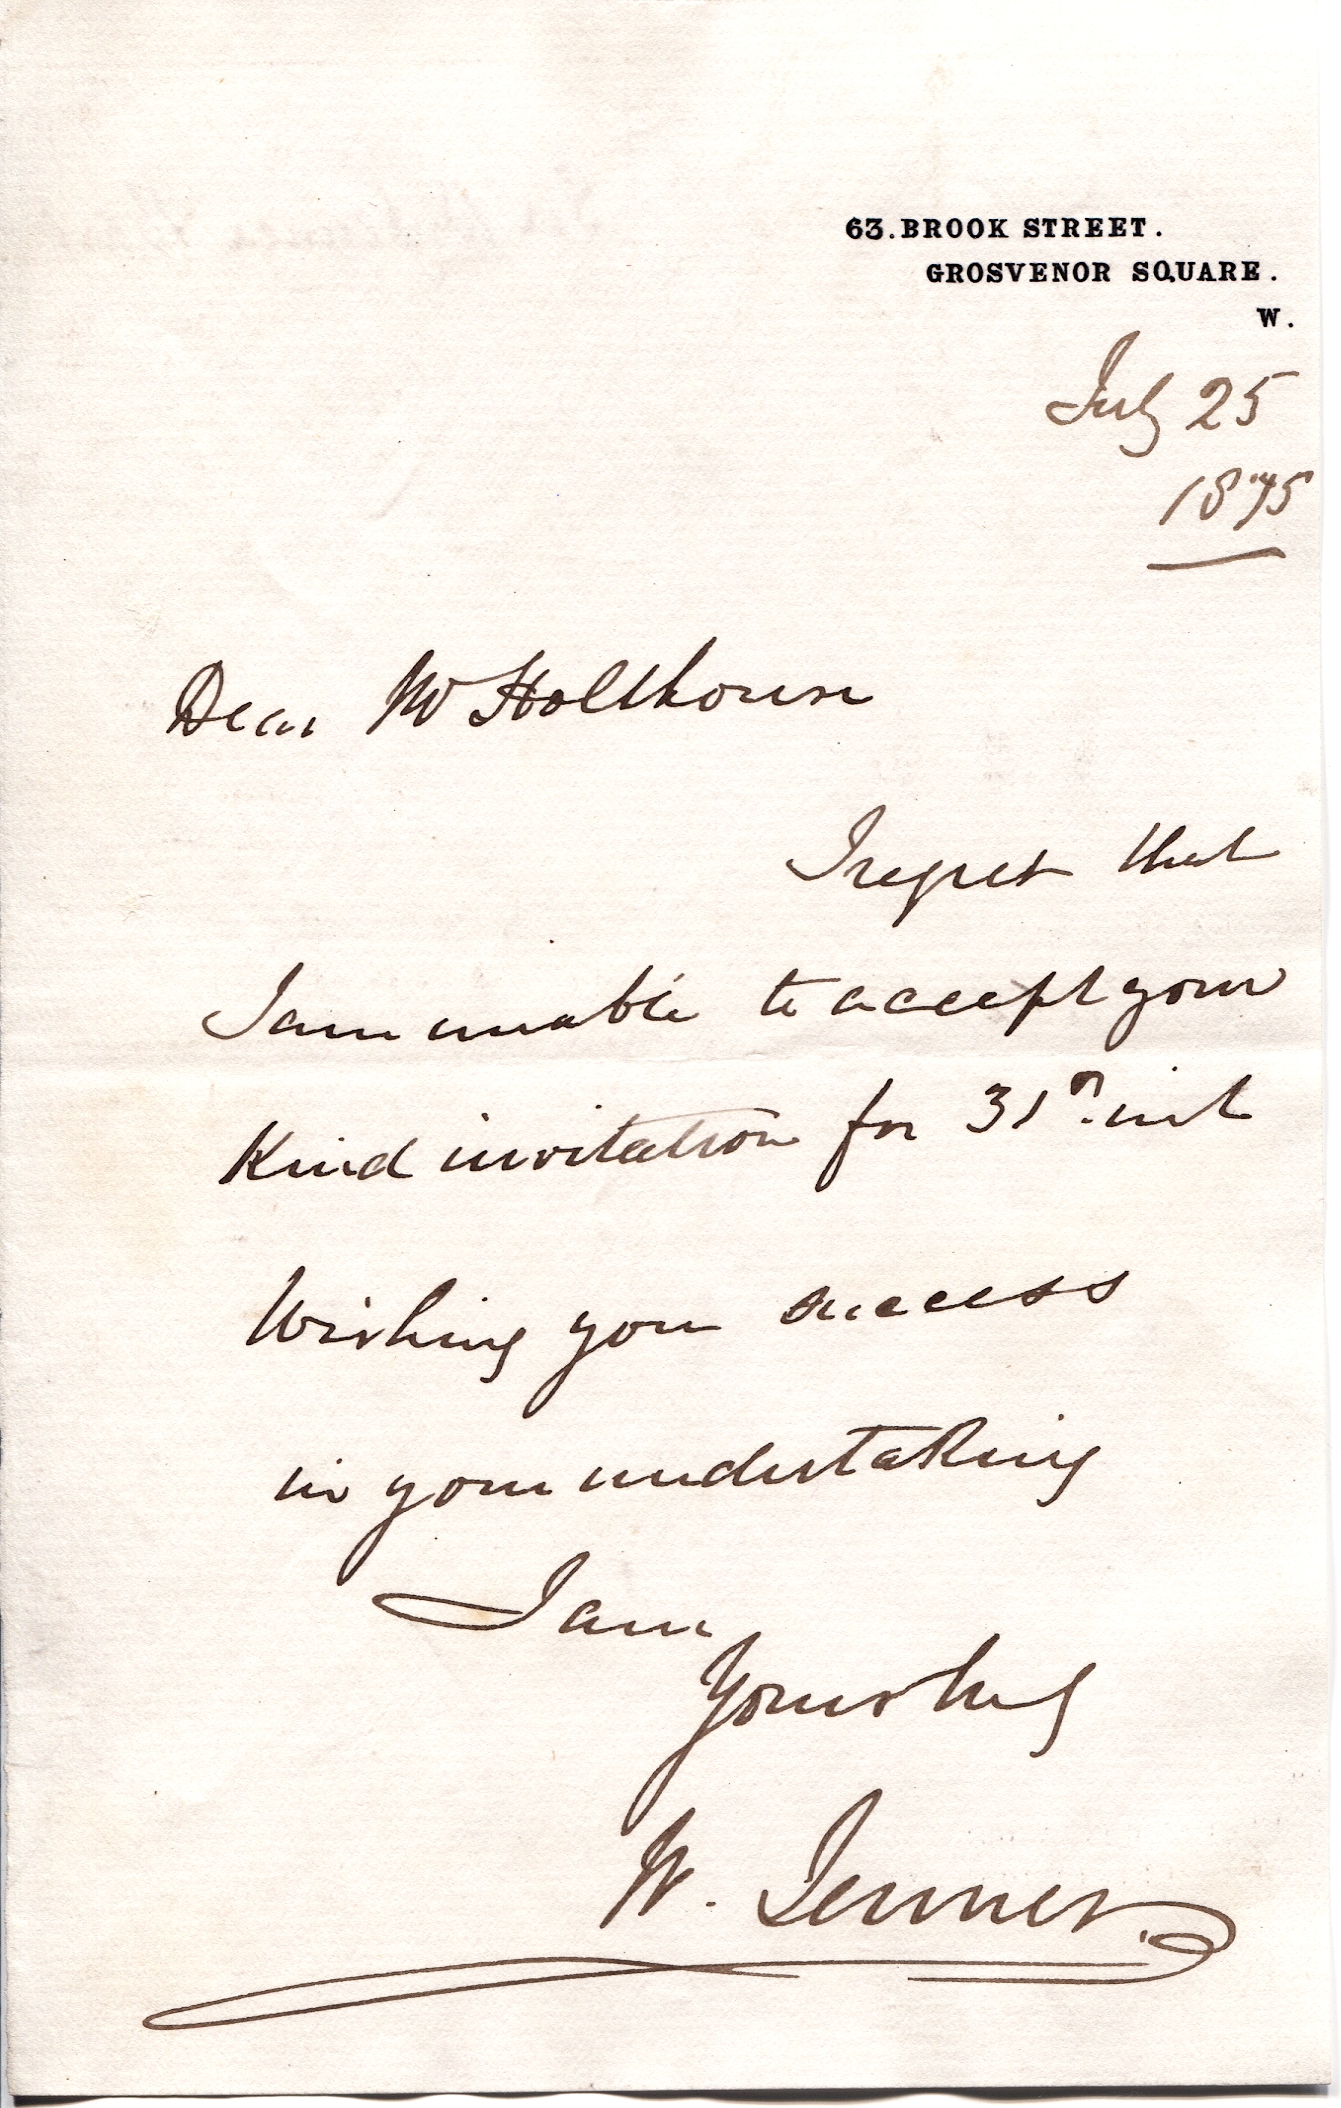 63. BROOK STREET.
GROSVENOR SQUARE.
W.
July 25
1875
Dear Mr Holthouse
I regret that
I am unable to accept your
Kind invitation for 31st inst
Wishing you success
in your undertaking
I am
Yours truly
W. Jenner